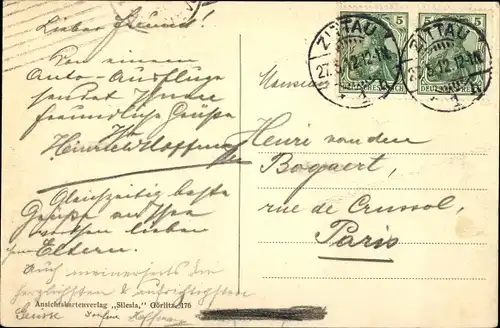 Lieber Freund!
Von einem
Auto-Ausfluge
sendet Ihnen
freundliche Grüße
Ihr
Heinrich Hoffmann
Gleichzeitig beste
Grüße an Ihre
lieben
Eltern.
Auch meinerseits die
herzlichsten & aufrichtigsten
Grüsse
Ansichtskartenverlag „Silesia,“ Görlitz. 176
ZITTAU
27. 12.12-1N.
5
DEUTSCHES REICH
ZITTAU
5
DEUTSCHES REICH
Monsieur
Henri van den
Bogaert,
rue de Crussol,
Paris